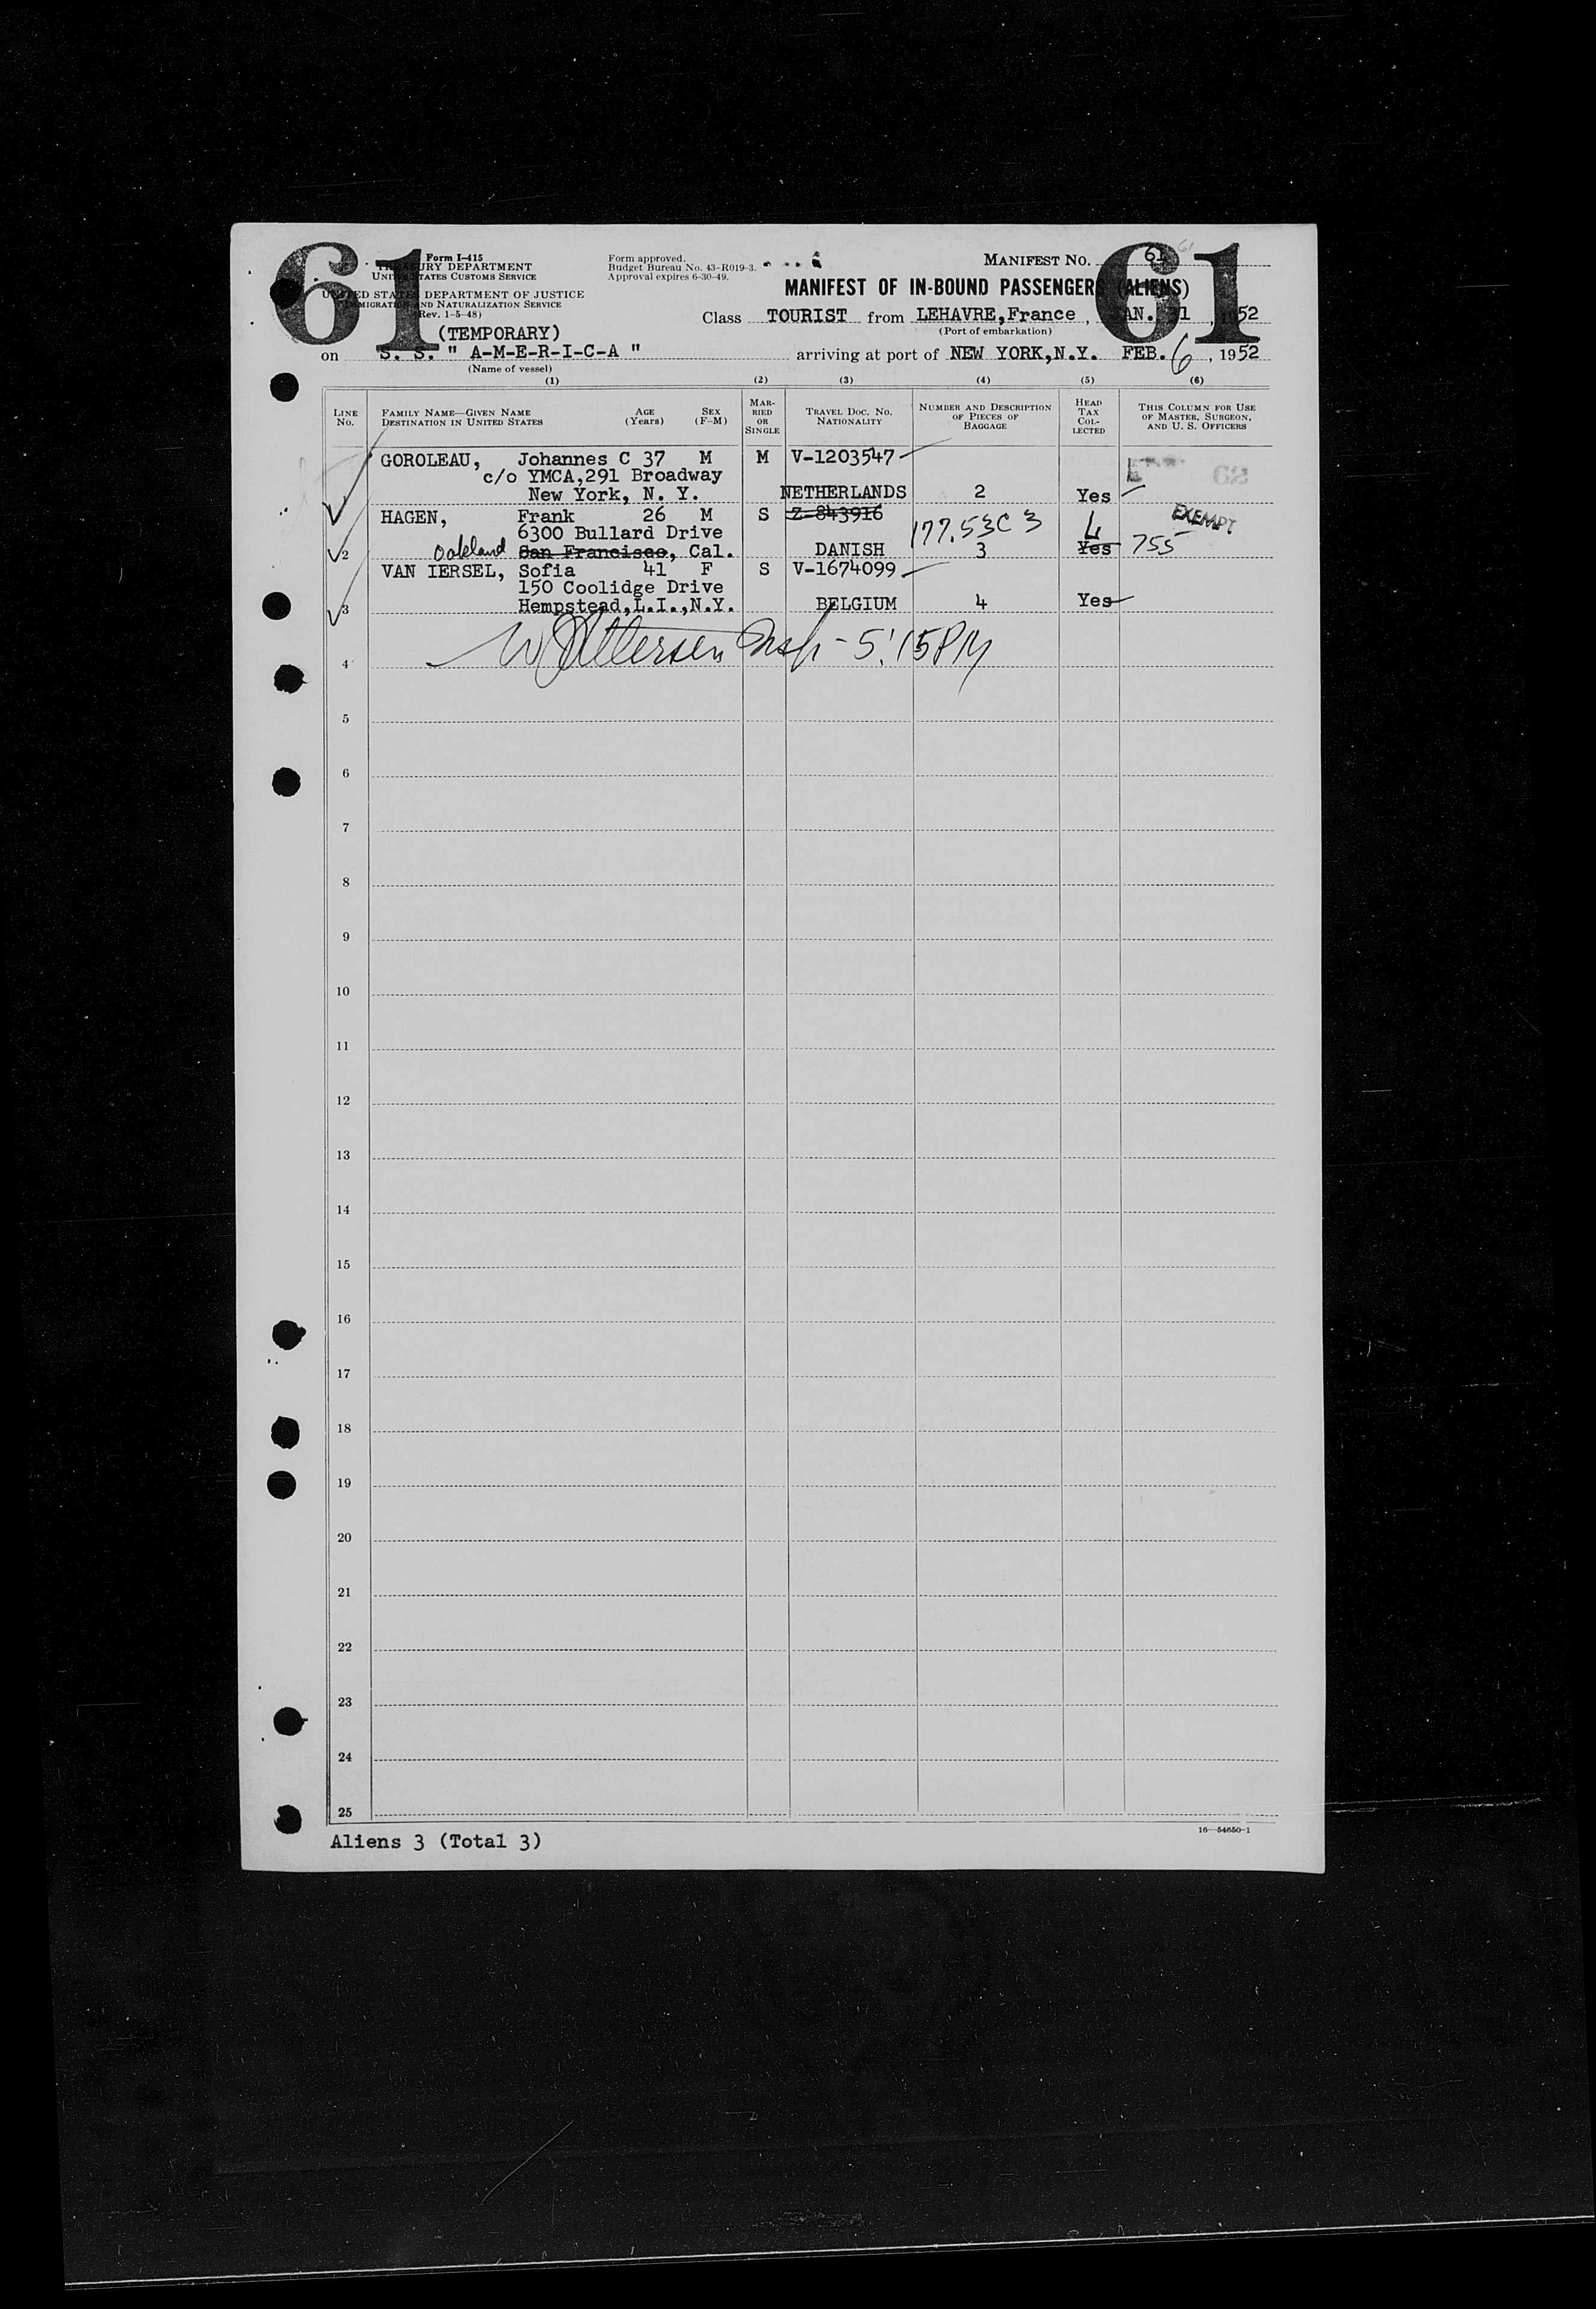 61 61
Form I-415
TREASURY DEPARTMENT
UNITED STATES CUSTOMS SERVICE
UNITED STATES DEPARTMENT OF JUSTICE
IMMIGRATION AND NATURALIZATION SERVICE
(Rev. 1-5-48)
Form approved.
Budget Bureau No. 43-R019-3.
Approval expires 6-30-49.
MANIFEST NO. 61
61
MANIFEST OF IN-BOUND PASSENGERS (ALIENS)
(TEMPORARY)
Class TOURIST from LEHAVRE,France , JAN. 31 , 1952
(Port of embarkation)
on S. S. " A-M-E-R-I-C-A " arriving at port of NEW YORK,N.Y. FEB. 6 , 1952
(Name of vessel)
(1) (2) (3) (4) (5) (6)
LINE No. FAMILY NAME—GIVEN NAME DESTINATION IN UNITED STATES AGE (Years) SEX (F-M) MARRIED OR SINGLE TRAVEL DOC. NO. NATIONALITY NUMBER AND DESCRIPTION OF PIECES OF BAGGAGE HEAD TAX COLLECTED THIS COLUMN FOR USE OF MASTER, SURGEON, AND U. S. OFFICERS
GOROLEAU, Johannes C 37 M M V-1203547
c/o YMCA,291 Broadway 62
1 New York, N. Y. NETHERLANDS 2 Yes
HAGEN, Frank 26 M S Z-843916 EXEMPT
6300 Bullard Drive 177.53C 3 L
2 Oakland San Francisco, Cal. DANISH 3 Yes 755
VAN IERSEL, Sofia 41 F S V-1674099
150 Coolidge Drive
3 Hempstead,L.I.,N.Y. BELGIUM 4 Yes
Insp - 5:15PM
4
5
6
7
8
9
10
11
12
13
14
15
16
17
18
19
20
21
22
23
24
25
Aliens 3 (Total 3)
16—54650-1